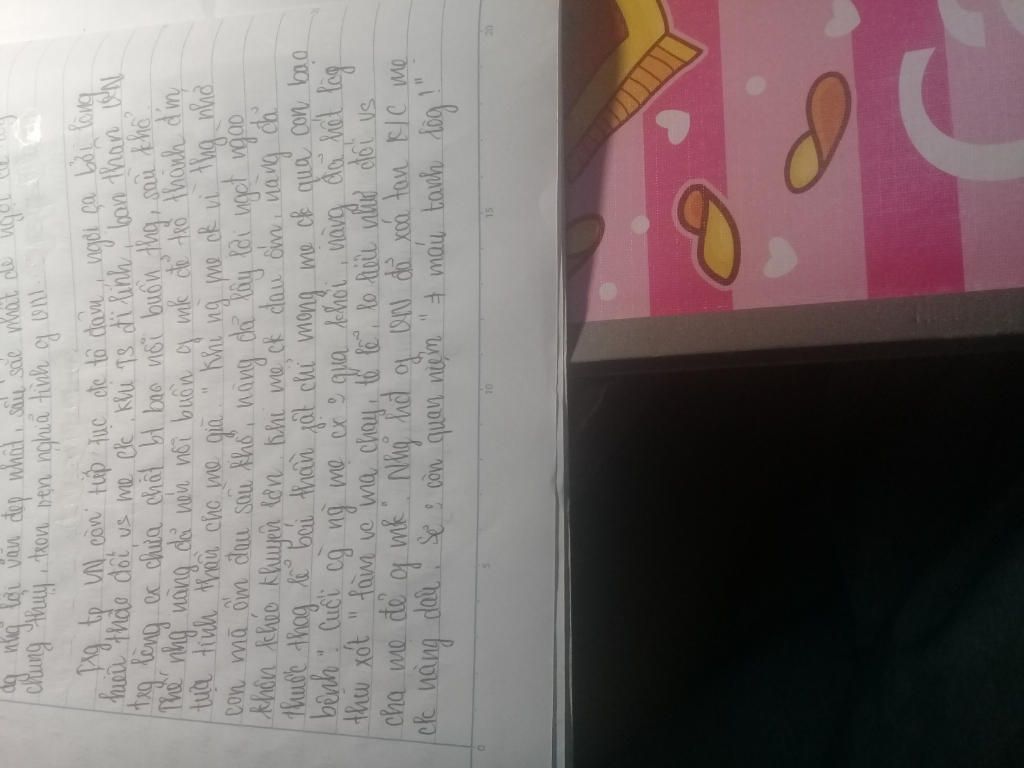 dg nhả lời văn đẹp nhất, sâu sắc nhất để ngợi ca
chung thủy, trọn vẹn nghĩa tình of VN.
trg tp VN còn tiếp tục đc tô đậm, ngợi ca bởi lòng
hiếu thảo đối vs mẹ ck khi TS đi lính, bản thân VN
trg lòng ắc chứa chất bt bao nỗi buồn thg, sầu khổ
Thế nhg nàng đã nén nỗi buồn of mk để trở thành đm
tựa tinh thần cho mẹ già. " Khi ng mẹ ck vì thg nhớ
con mà ốm đau sầu khổ, nàng đã lấy lời ngọt ngào
khôn khéo khuyên lơn. Khi mẹ ck đau ốm, nàng đã
thuốc thag lễ bái thần phật chỉ mong mẹ ck qua cơn bạo
bệnh". Cuối cg ng mẹ cx 0 qua khỏi, nàng đã hết lòg
thw xót " làm vc ma chay, tế lễ, lo liệu như đối vs
cha mẹ đẻ of mk". Nhg hđ of VN đã xóa tan K/C mẹ
ck nàng dâu, sẽ 0 còn quan niệm " ≠ máu tanh lòg!"
0 5 10 15 20